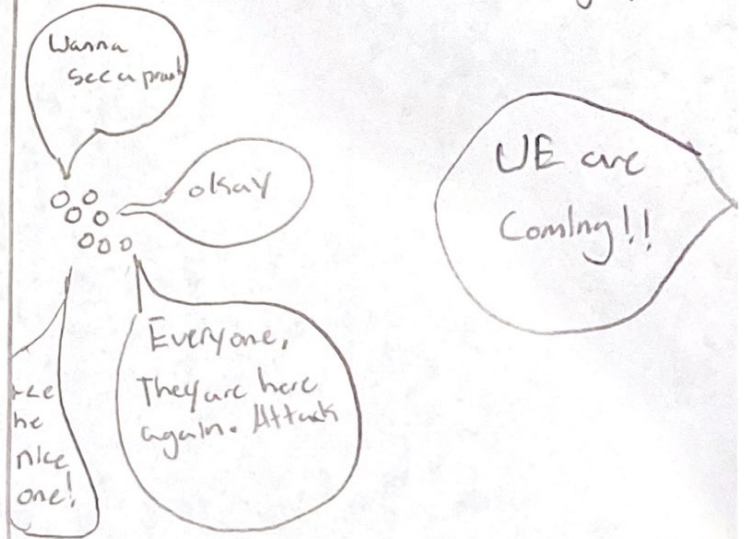 Wanna
see a prank
okay
WE are
Coming!!
Everyone,
They are here
again. Attack
he
nice
one!